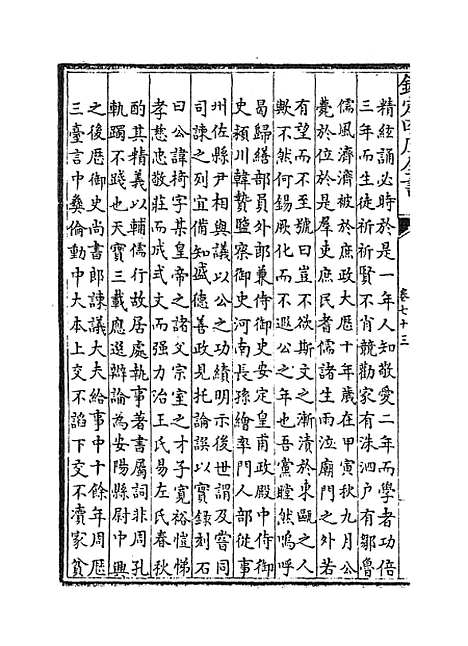 欽定四庫全書
卷七十三
精經誦必時於是一年人知敬愛二年而學者功倍
三年而生徒祈祈賢不肖競勸家有洙泗戶有鄒魯
儒風濟濟被於庶政大厯十年歲在甲寅秋九月公
薨於位於是羣吏庶民耆儒諸生雨泣廟門之外若
有望而不至號曰豈不欲斯文之漸漬於東甌之人
歟不然何錫厥化而不遐公之年也吾黨瞠然嗚呼
曷歸繕部員外郎兼侍御史安定皇甫政殿中侍御
史潁川韓贄監察御史河南長孫繪率門人部從事
州佐縣尹相與議以公之功績明示後世謂及嘗同
司諫之列宜備知盛德善政見托論譔以實錄刻石
曰公諱椅字某皇帝之諸父宗室之才子寛裕愷悌
孝慈忠敬莊而成式文而强力治王氏易左氏春秋
酌其精義以輔儒行故居處執事著書屬詞非周孔
軌躅不踐也天寶三載應選辯論為安陽縣尉中興
之後歴御史尚書郎諫議大夫給事中十餘年周歴
三臺言中彝倫動中大本上交不謟下交不瀆家貧